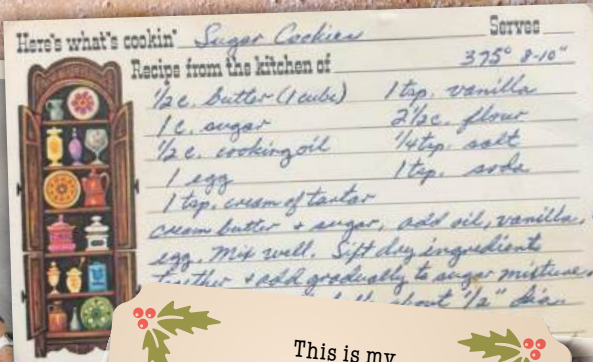 Here's what's cookin' Sugar Cookies Serves
Recipe from the kitchen of 375° 8-10"
1/2 c. butter (1 cube) 1 tsp. vanilla
1 c. sugar 2 1/2 c. flour
1/2 c. cooking oil 1/4 tsp. salt
1 egg 1 tsp. soda
1 tsp. cream of tartar
cream butter + sugar, add oil, vanilla,
egg. Mix well. Sift dry ingredients
together + add gradually to sugar mixture.
about 1/2"
This is my